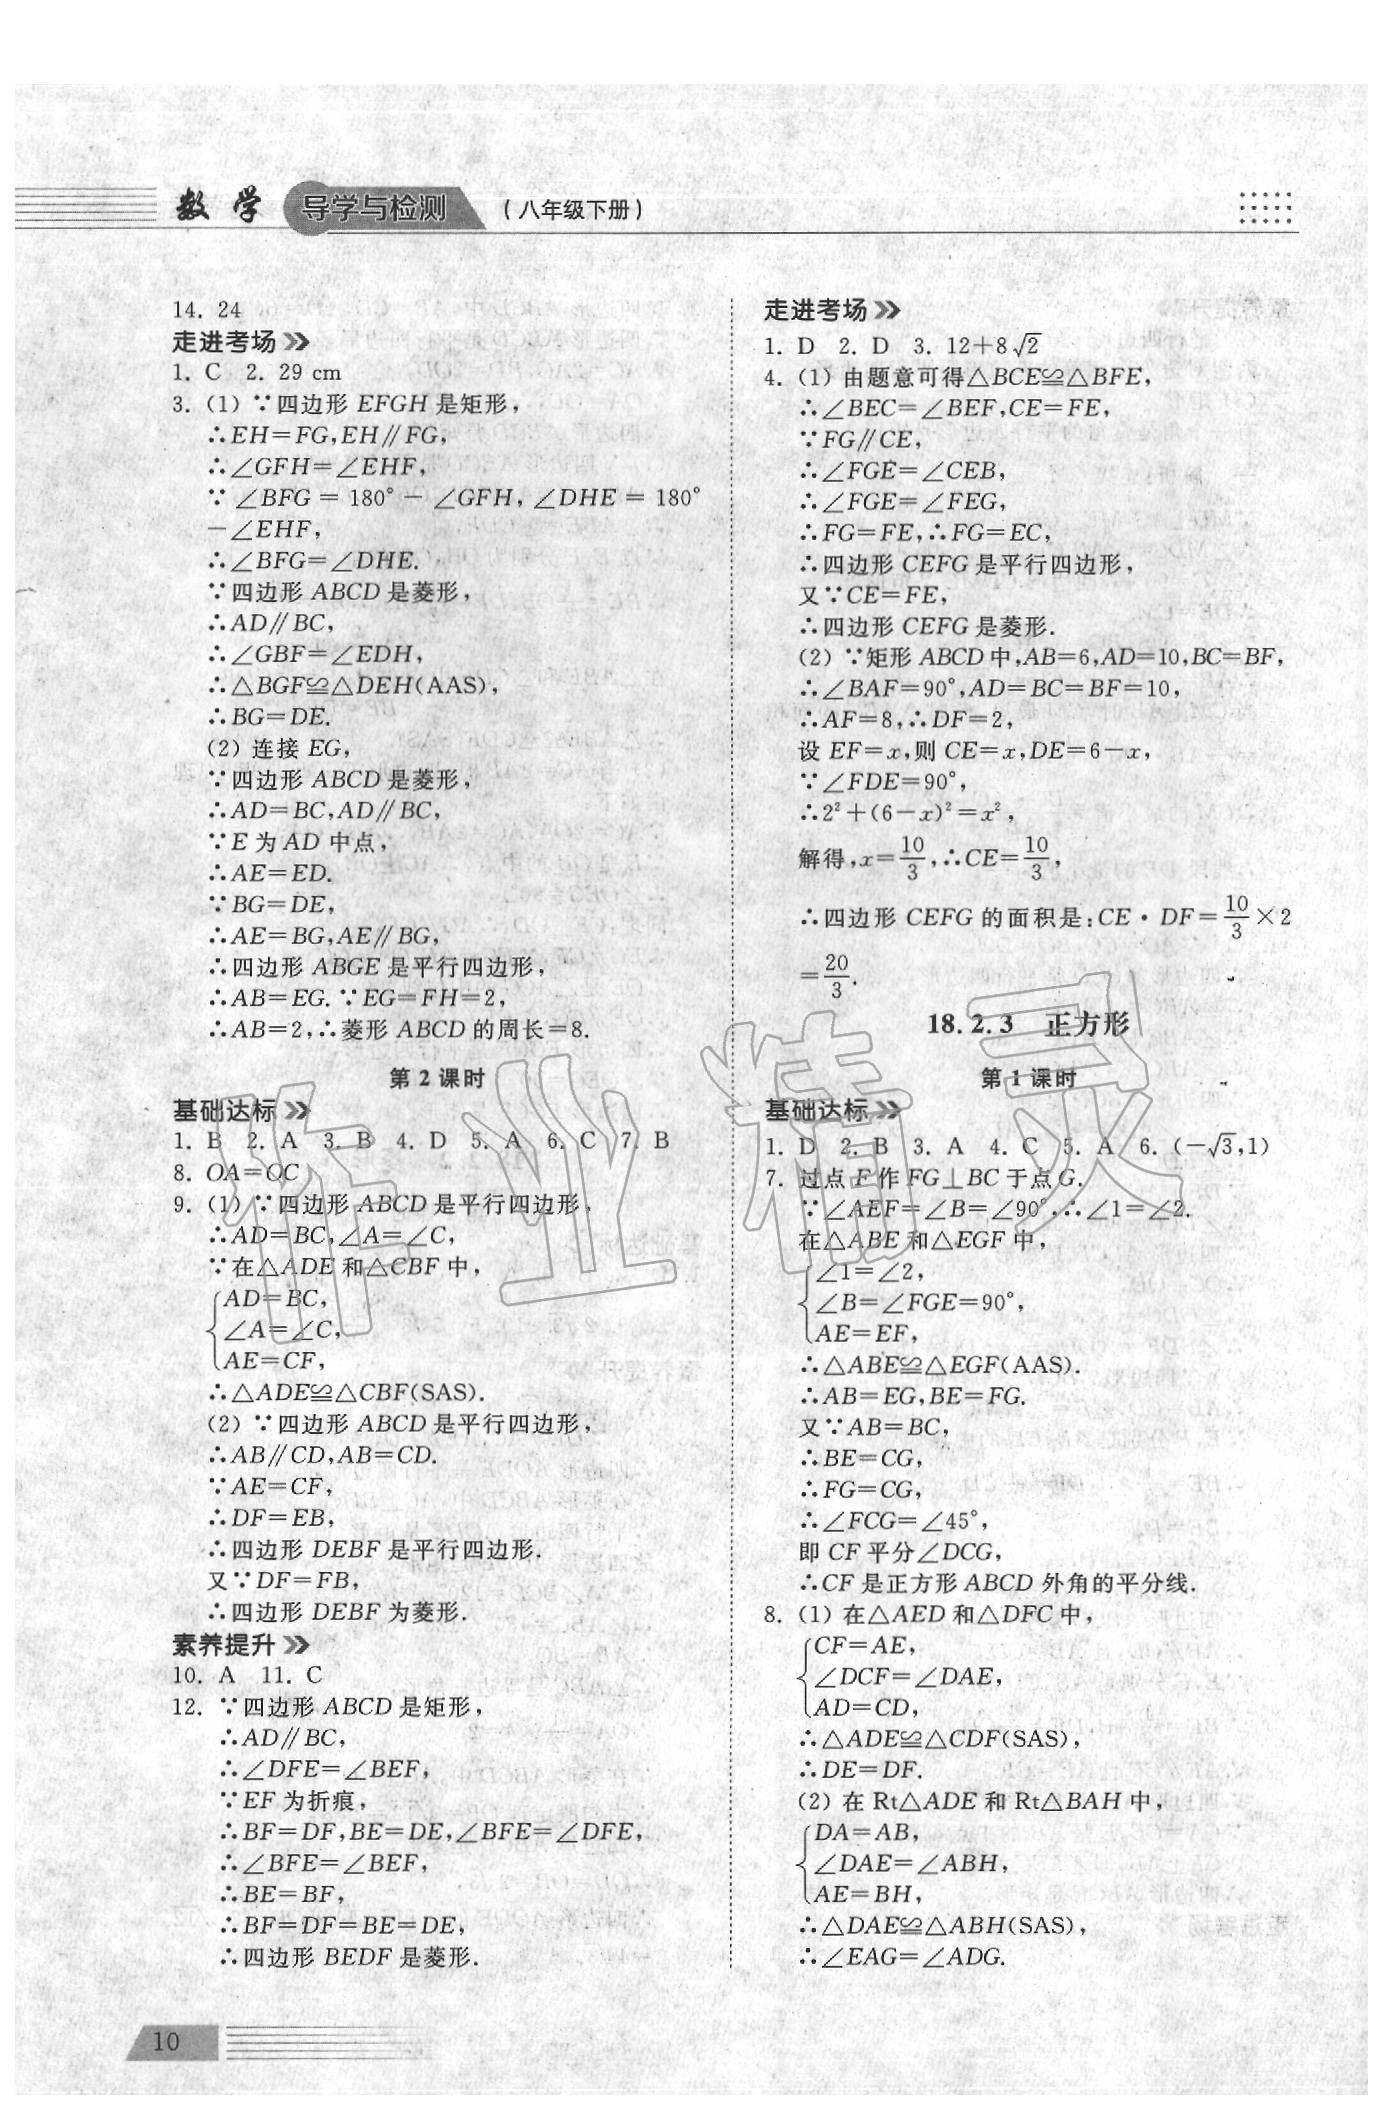 数学 导学与检测 (八年级下册)
14. 24
走进考场
1. C 2. 29 cm
3. (1) ∵四边形 EFGH 是矩形,
∴EH=FG,EH∥FG,
∴∠GFH=∠EHF,
∵∠BFG = 180° - ∠GFH, ∠DHE = 180°
-∠EHF,
∴∠BFG=∠DHE.
∵四边形 ABCD 是菱形,
∴AD∥BC,
∴∠GBF=∠EDH,
∴△BGF≌△DEH(AAS),
∴BG=DE.
(2) 连接 EG,
∵四边形 ABCD 是菱形,
∴AD=BC,AD∥BC,
∵E 为 AD 中点,
∴AE=ED.
∵BG=DE,
∴AE=BG,AE∥BG,
∴四边形 ABGE 是平行四边形,
∴AB=EG. ∵EG=FH=2,
∴AB=2,∴菱形 ABCD 的周长=8.
第 2 课时
基础达标
1. B 2. A 3. B 4. D 5. A 6. C 7. B
8. OA=OC
9. (1) ∵四边形 ABCD 是平行四边形,
∴AD=BC,∠A=∠C,
∵在△ADE 和△CBF 中,
AD=BC,
∠A=∠C,
AE=CF,
∴△ADE≌△CBF(SAS).
(2) ∵四边形 ABCD 是平行四边形,
∴AB∥CD,AB=CD.
∵AE=CF,
∴DF=EB,
∴四边形 DEBF 是平行四边形.
又∵DF=FB,
∴四边形 DEBF 为菱形.
素养提升
10. A 11. C
12. ∵四边形 ABCD 是矩形,
∴AD∥BC,
∴∠DFE=∠BEF,
∵EF 为折痕,
∴BF=DF,BE=DE,∠BFE=∠DFE,
∴∠BFE=∠BEF,
∴BE=BF,
∴BF=DF=BE=DE,
∴四边形 BEDF 是菱形.
走进考场
1. D 2. D 3. 12+8√2
4. (1) 由题意可得△BCE≌△BFE,
∴∠BEC=∠BEF,CE=FE,
∵FG∥CE,
∴∠FGE=∠CEB,
∴∠FGE=∠FEG,
∴FG=FE,∴FG=EC,
∴四边形 CEFG 是平行四边形,
又∵CE=FE,
∴四边形 CEFG 是菱形.
(2) ∵矩形 ABCD 中,AB=6,AD=10,BC=BF,
∴∠BAF=90°,AD=BC=BF=10,
∴AF=8,∴DF=2,
设 EF=x,则 CE=x,DE=6-x,
∵∠FDE=90°,
∴2²+(6-x)²=x²,
解得,x=10/3,∴CE=10/3,
∴四边形 CEFG 的面积是:CE·DF=10/3×2
=20/3.
18.2.3 正方形
第 1 课时
基础达标
1. D 2. B 3. A 4. C 5. A 6. (-√3,1)
7. 过点 F 作 FG⊥BC 于点 G.
∵∠AEF=∠B=∠90°,∴∠1=∠2.
在△ABE 和△EGF 中,
∠1=∠2,
∠B=∠FGE=90°,
AE=EF,
∴△ABE≌△EGF(AAS).
∴AB=EG,BE=FG.
又∵AB=BC,
∴BE=CG,
∴FG=CG,
∴∠FCG=∠45°,
即 CF 平分∠DCG,
∴CF 是正方形 ABCD 外角的平分线.
8. (1) 在△AED 和△DFC 中,
CF=AE,
∠DCF=∠DAE,
AD=CD,
∴△ADE≌△CDF(SAS),
∴DE=DF.
(2) 在 Rt△ADE 和 Rt△BAH 中,
DA=AB,
∠DAE=∠ABH,
AE=BH,
∴△DAE≌△ABH(SAS),
∴∠EAG=∠ADG.
10
作业精灵